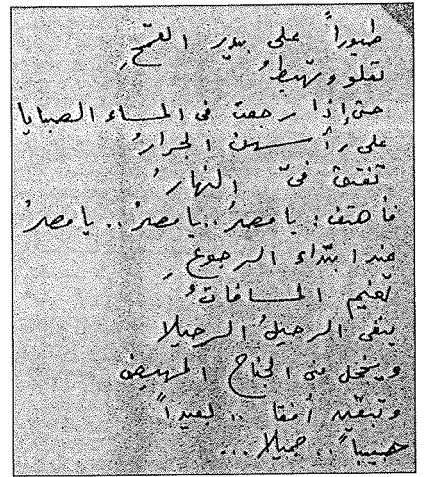 طيوراً على بيدر القمحِ
تعلو وتهبطُ
حتى إذا رجعت في المساء الصبايا
على رأسهن الجرارُ
تفتق فيّ النهارُ
فأهتف: يا مصرُ.. يا مصرُ.. يا مصرُ
عند ابتداء الرجوعِ
تغيم المسافاتُ
ينفى الرحيلُ الرحيلا
و مني الجناح المهيض
وتبقين أفقا .. بعيداً
حبيباً .. جميلا ...